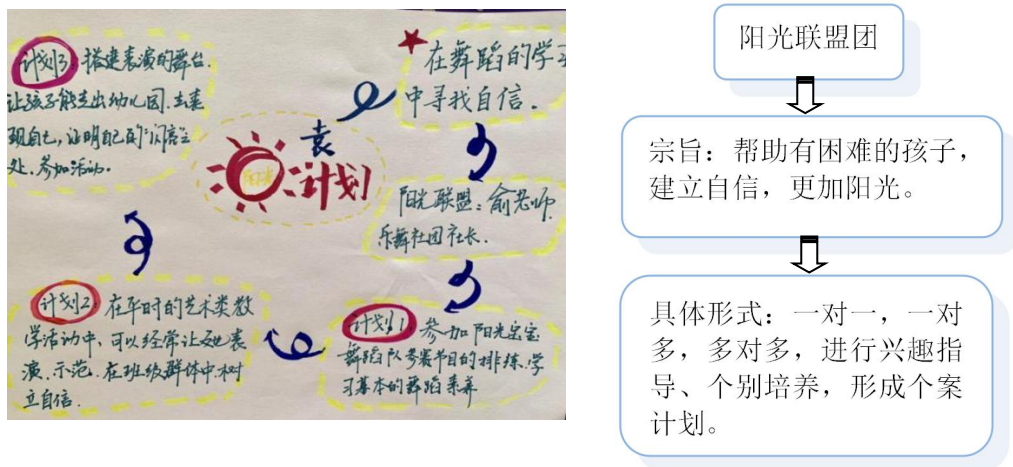 计划3：搭建表演的舞台.
让孩子能走出幼儿园.去表
现自己,证明自己的"闪亮之
处.参加活动.
在舞蹈的学习
中寻找自信.
袁
阳光
计划
阳光联盟：俞老师.
乐舞社团社长.
计划1：参加阳光宝宝
舞蹈队考赛节目的排练.学
习基本的舞蹈素养
计划2：在平时的艺术类教
学活动中,可以经常让她表
演.示范.在班级群体中树
立自信.
阳光联盟团
宗旨：帮助有困难的孩子，
建立自信，更加阳光。
具体形式：一对一，一对
多，多对多，进行兴趣指
导、个别培养，形成个案
计划。